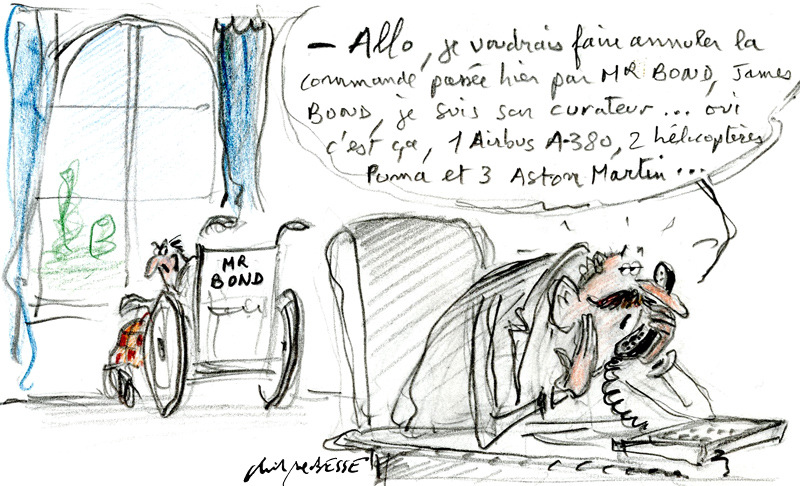 – Allo, je voudrais faire annuler la
commande passée hier par MR BOND, James
BOND, je suis son curateur... oui
c'est ça, 1 Airbus A.380, 2 hélicoptères
Puma et 3 Aston Martin...
MR
BOND
B
BESSE